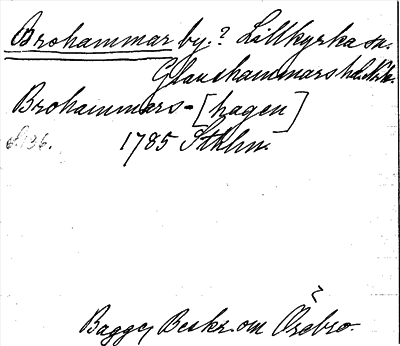 Brohammar by.? Lillkyrka sn.
Glanshammars hd.
Brohammers-[hagen]
1785 Stkhn.
Bagge, Beskr. om Örebro.